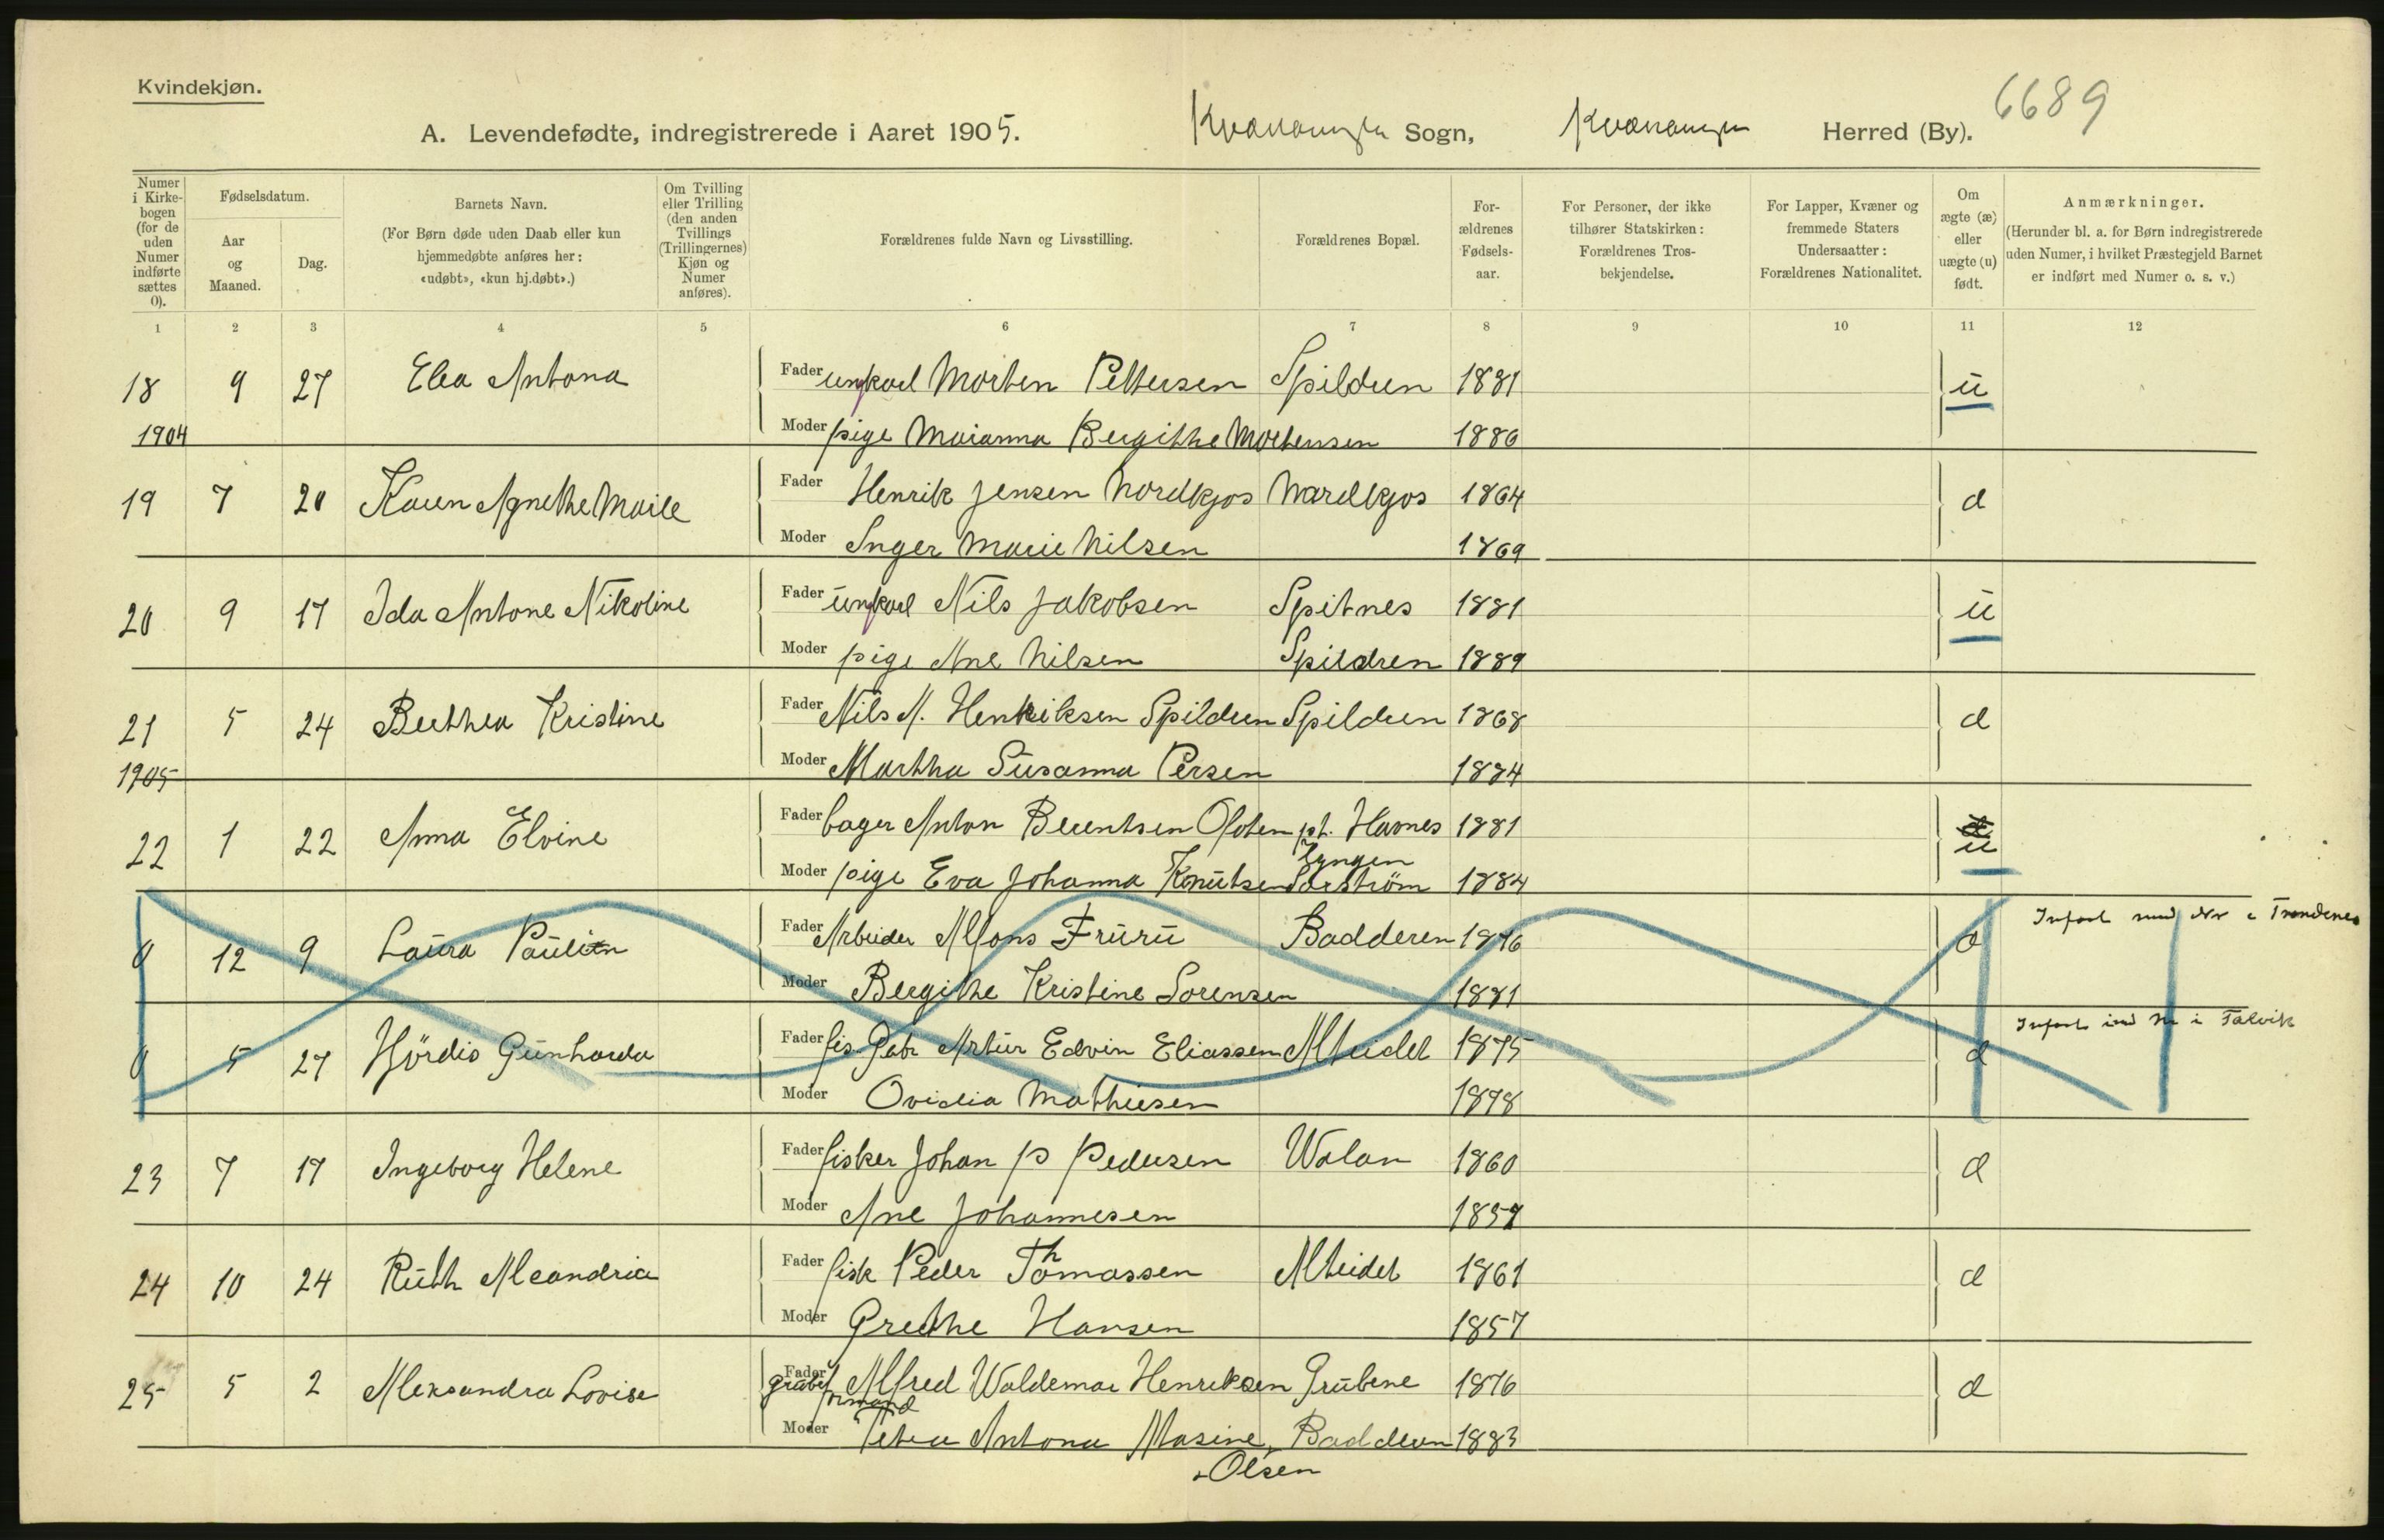 Kvindekjøn.
6689
A. Levendefødte, indregistrerede i Aaret 1905. Kvænangen Sogn, Kvænangen Herred (By).
Numer i Kirkebogen (for de uden Numer indførte sættes 0).
Fødselsdatum.
Aar og Maaned.
Dag.
Barnets Navn.
(For Børn døde uden Daab eller kun hjemmedøbte anføres her: «udøbt», «kun hj.døbt».)
Om Tvilling eller Trilling (den anden Tvillings (Trillingernes) Kjøn og Numer anføres).
Forældrenes fulde Navn og Livsstilling.
Forældrenes Bopæl.
Forældrenes Fødselsaar.
For Personer, der ikke tilhører Statskirken: Forældrenes Trosbekjendelse.
For Lapper, Kvæner og fremmede Staters Undersaatter: Forældrenes Nationalitet.
Om ægte (æ) eller uægte (u) født.
Anmærkninger.
(Herunder bl. a. for Børn indregistrerede uden Numer, i hvilket Præstegjeld Barnet er indført med Numer o. s. v.)
1 2 3 4 5 6 7 8 9 10 11 12
18 9 27 Elea Antona Fader ungkarl Morten Pettersen Spildren 1881 u
1904 Moder pige Marianna Bergithe Mortensen 1886
19 7 20 Karen Agnethe Marie Fader Henrik Jensen Nordkjos Nordkjos 1864 æ
Moder Inger Marie Nilsen 1869
20 9 17 Ida Antone Nikoline Fader ungkarl Nils Jakobsen Spitnes 1881 u
Moder pige Ane Nilsen Spildren 1889
21 5 24 Berthea Kristine Fader Nils A. Henriksen Spildren Spildren 1868 æ
1905 Moder Martha Susanna Persen 1884
22 1 22 Anna Elvine Fader bager Anton Berentsen Ofoten pt. Havnes 1881 u
Lyngen
Moder pige Eva Johanna Knutsen Sørstrøm 1884
0 12 9 Laura Paulin Fader Arbeider Alfons Fruru Badderen 1876 æ Infört med Nr i Trondenes
Moder Bergithe Kristine Sorensen 1881
0 5 27 Hjördis Gunharda Fader fis. Gabr Artur Edvin Eliassen Alteidet 1875 æ Infört med Nr i Talvik
Moder Ovidia Mathiesen 1878
23 7 17 Ingeborg Helene Fader fisker Johan P Pedersen Walan 1860 æ
Moder Ane Johannesen 1857
24 10 24 Ruth Aleandria Fader fisk Peder Thomassen Alteidet 1861 æ
Moder Grethe Hansen 1857
25 5 2 Aleksandra Lovise Fader grubef Alfred Waldemar Henriksen Grubene 1876 æ
ormand
Moder Petra Antona Masine, Badderen 1883
Olsen